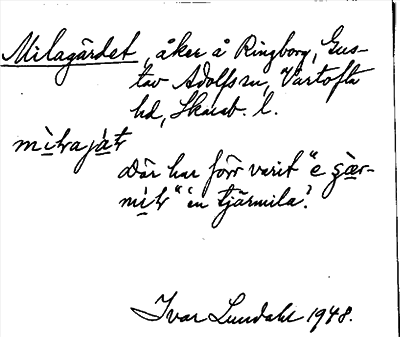 Milagärdet, åker å Ringborg, Gus-
tav Adolfs sn, Vartofta
hd, Skarab. l.
Där har förr varit "e
"en tjärmila".
Ivar Lundahl 1948.